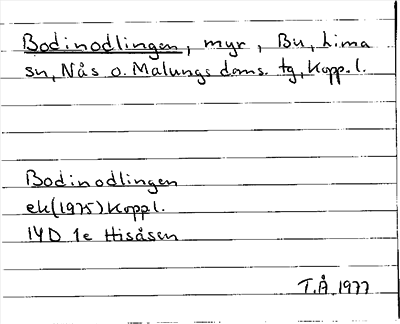 Bodinodlingen, myr, Bu, Lima
sn, Nås o. Malungs doms. tg, Kopp. l.
Bodinodlingen
ek (1975) Kopp l.
14D 1e Hisåsen
T.Å 1977